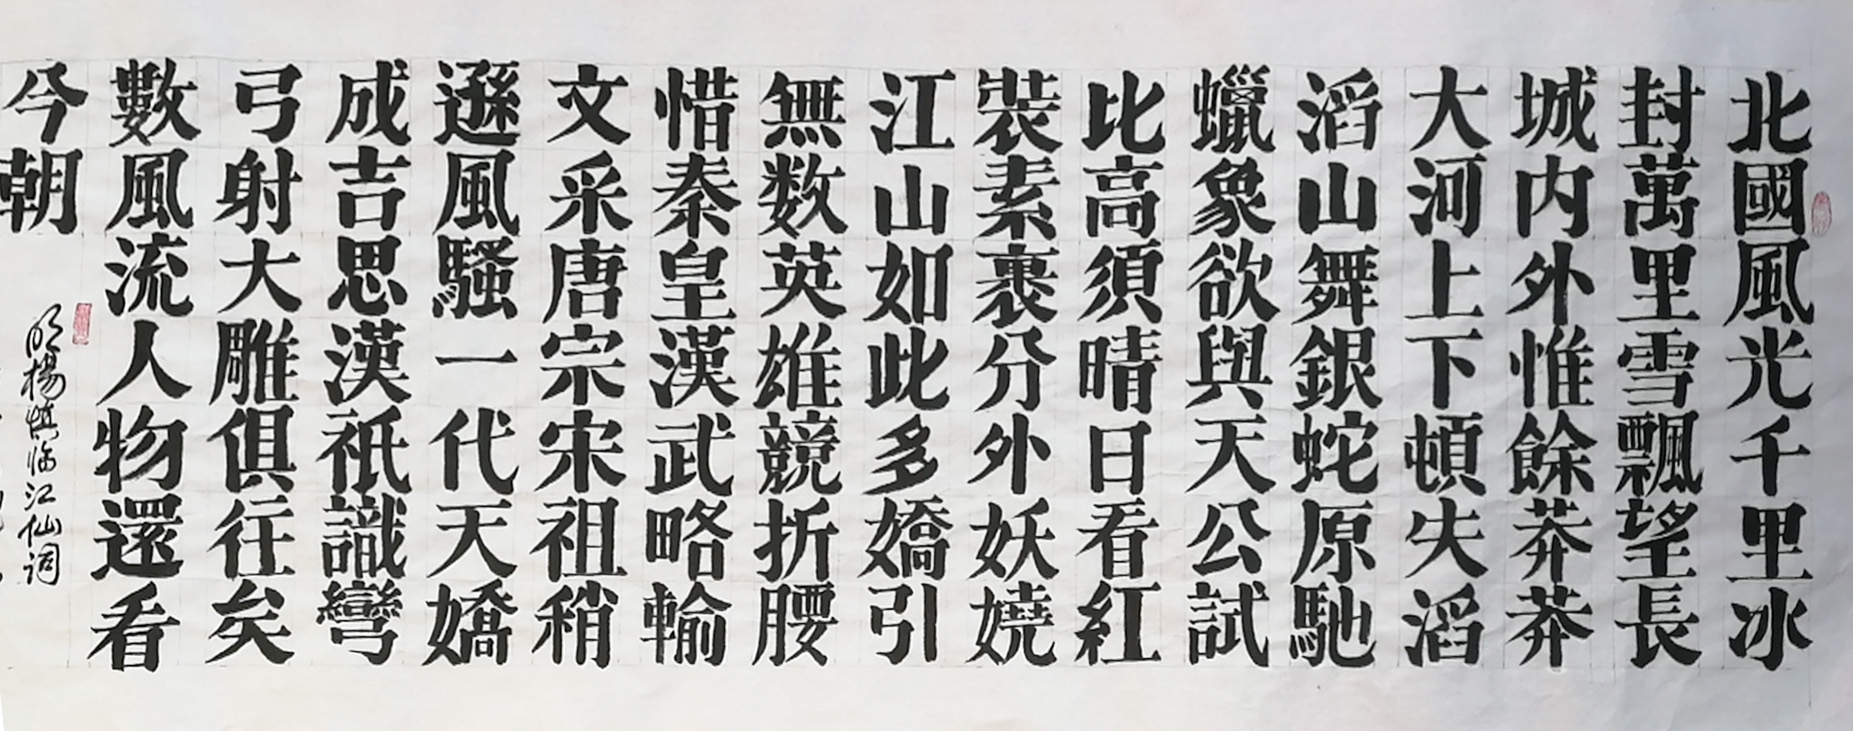 北國風光千里冰
封萬里雪飄望長
城内外惟餘莽莽
大河上下頓失滔
滔山舞銀蛇原馳
蠟象欲與天公試
比高須晴日看紅
裝素裹分外妖嬈
江山如此多嬌引
無数英雄競折腰
惜秦皇漢武略輸
文采唐宗宋祖稍
遜風騷一代天嬌
成吉思漢祇識彎
弓射大雕俱往矣
數風流人物還看
今朝
明楊慎臨江仙詞